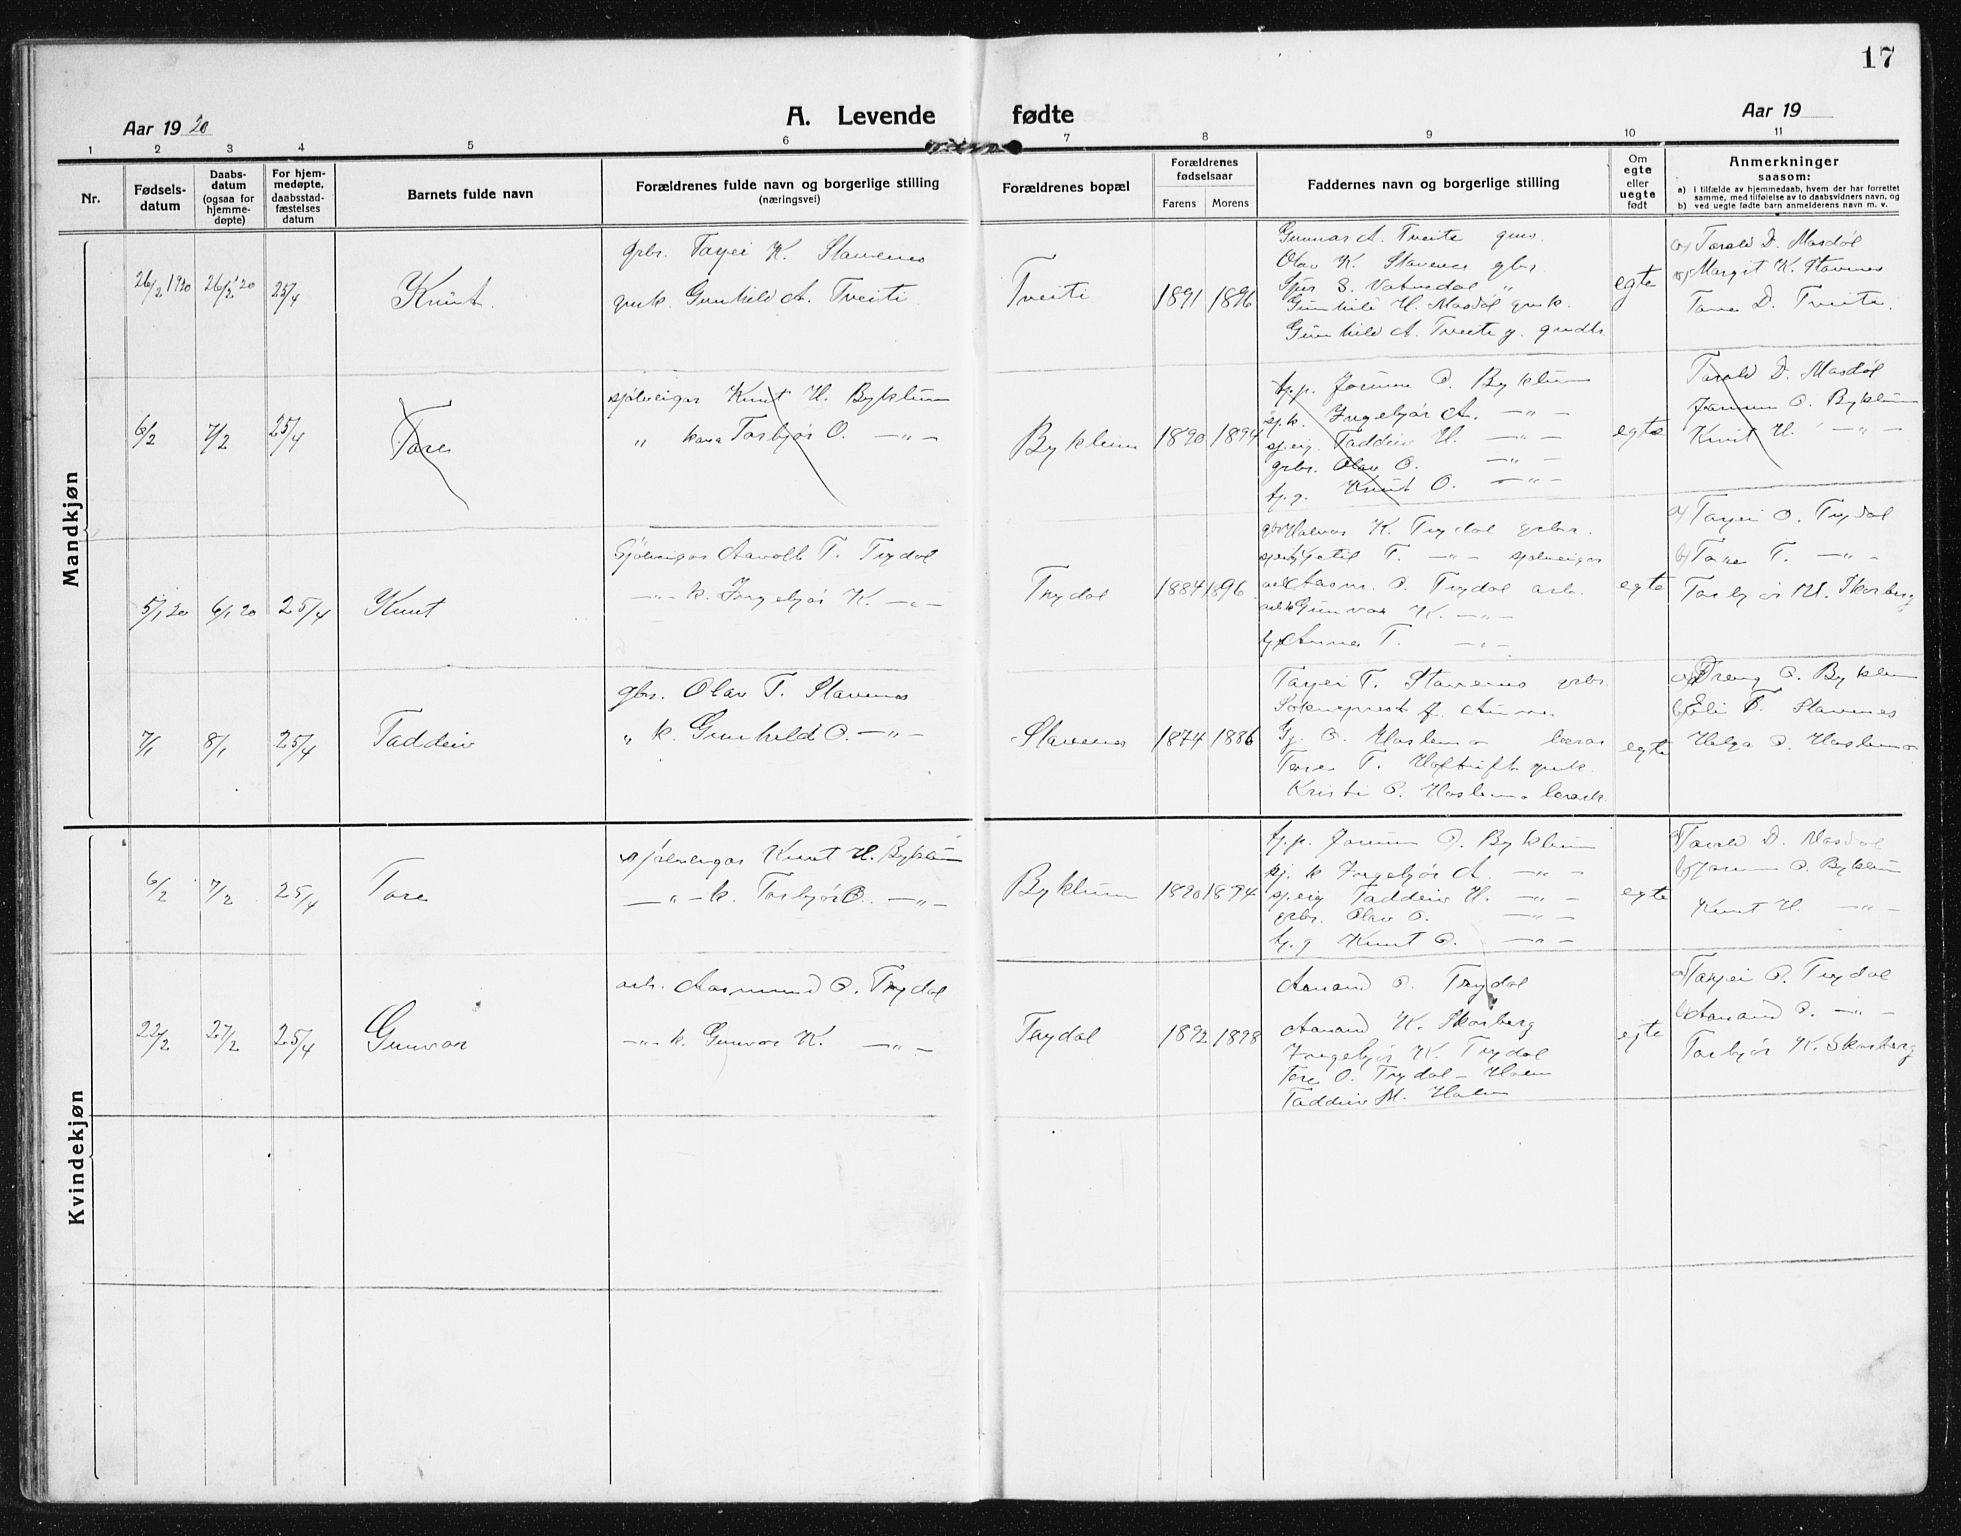 17
Aar 1920
A. Levende fødte
Aar 19
1 2 3 4 5 6 7 8 9 10 11
Nr.
Fødsels-
datum
Daabs-
datum
(ogsaa for
hjemme-
døpte)
For hjem-
medøpte,
daabsstad-
fæstelses
datum
Barnets fulde navn
Forældrenes fulde navn og borgerlige stilling
(næringsvei)
Forældrenes bopæl
Forældrenes
fødselsaar
Farens Morens
Faddernes navn og borgerlige stilling
Om
egte
eller
uegte
født
Anmerkninger
saasom:
a) i tilfælde av hjemmedaab, hvem der har forrettet
samme, med tilføielse av to daabsvidners navn, og
b) ved uegte fødte barn anmelderens navn m. v.
Mandkjøn
26/2 1920 26/2 '20 25/4
Knut
gbr. Tarjei K. Stavenes
gmk. Gunhild A. Tveite
Tveite
1891 1896
Gunnar A. Tveite gm.
Olav K. Stavenes gbr.
S. Vatnedal "
Gunhild H. Masdøl gmk.
Gunhild A. Tveite g. grdtr.
egte
a) Torald D. Masdøl
b) Margit K. Stavenes
Tone D. Tveite.
6/2 7/2 25/4
Tore
sjølveigar Knut H. Byklum
" kona Torbjør O. — " —
Byklum
1890 1894
tj.p. Jorunn O. Byklum
sj.k. Ingebjør A. — " —
sj.eig. Taddeiv H. — " —
grbr. Olav O. — " —
tj.g. Knut O. — " —
egte
Torald D. Masdøl
Jorunn O. Byklum
Knut H. — " —
5/1 20 6/1 20 25/4
Knut
Sjølveigar Aavolt T. Trydal
— " — k. Ingebjør K. — " —
Trydal
1884 1896
Halvor K. Trydal grbr.
Ketil T. — " — sjølveigar
Aasm. O. Trydal arb.
Gunvor K. — " —
Anne T. — " —
egte
a) Tarjei O. Trydal
b) Tore T. — " —
Torbjør M. Skarberg
7/1 8/1 25/4
Taddeiv
gbr. Olav T. Stavenes
" k. Gunhild O. — " —
Stavenes
1874 1886
Tarjei T. Stavenes grbr.
Sokneprest
Gj. O. Haslemo lærar
Tone T. gmk.
Kristi O. Haslemo lærark.
egte
a) Dreng O. Byklum
b) Eli T. Stavenes
Helga O. Haslemo
Kvindekjøn
6/2 7/2 25/4
Tore
sjølveigar Knut H. Byklum
— " — k. Torbjør O. — " —
Byklum
1890 1894
tj.p. Jorunn O. Byklum
sj. k Ingebjør A. — " —
sj.eig Taddeiv H. — " —
grbr. Olav O. — " —
tj. g Knut O. — " —
egte
a) Torald D. Masdøl
b) Jorunn O. Byklum
Knut H. — " —
22/2 27/2 25/4
Gunvor
arb. Aasmund O. Trydal
— " — k. Gunvor K. — " —
Trydal
1892 1898
Aanund O. Trydal
Aanund K. Skarberg
Ingebjør K. Trydal
Tore O. Trydal -
Taddeiv M.
egte
a) Tarjei O. Trydal
b) Aanund O. — " —
Torbjør K. Skarberg